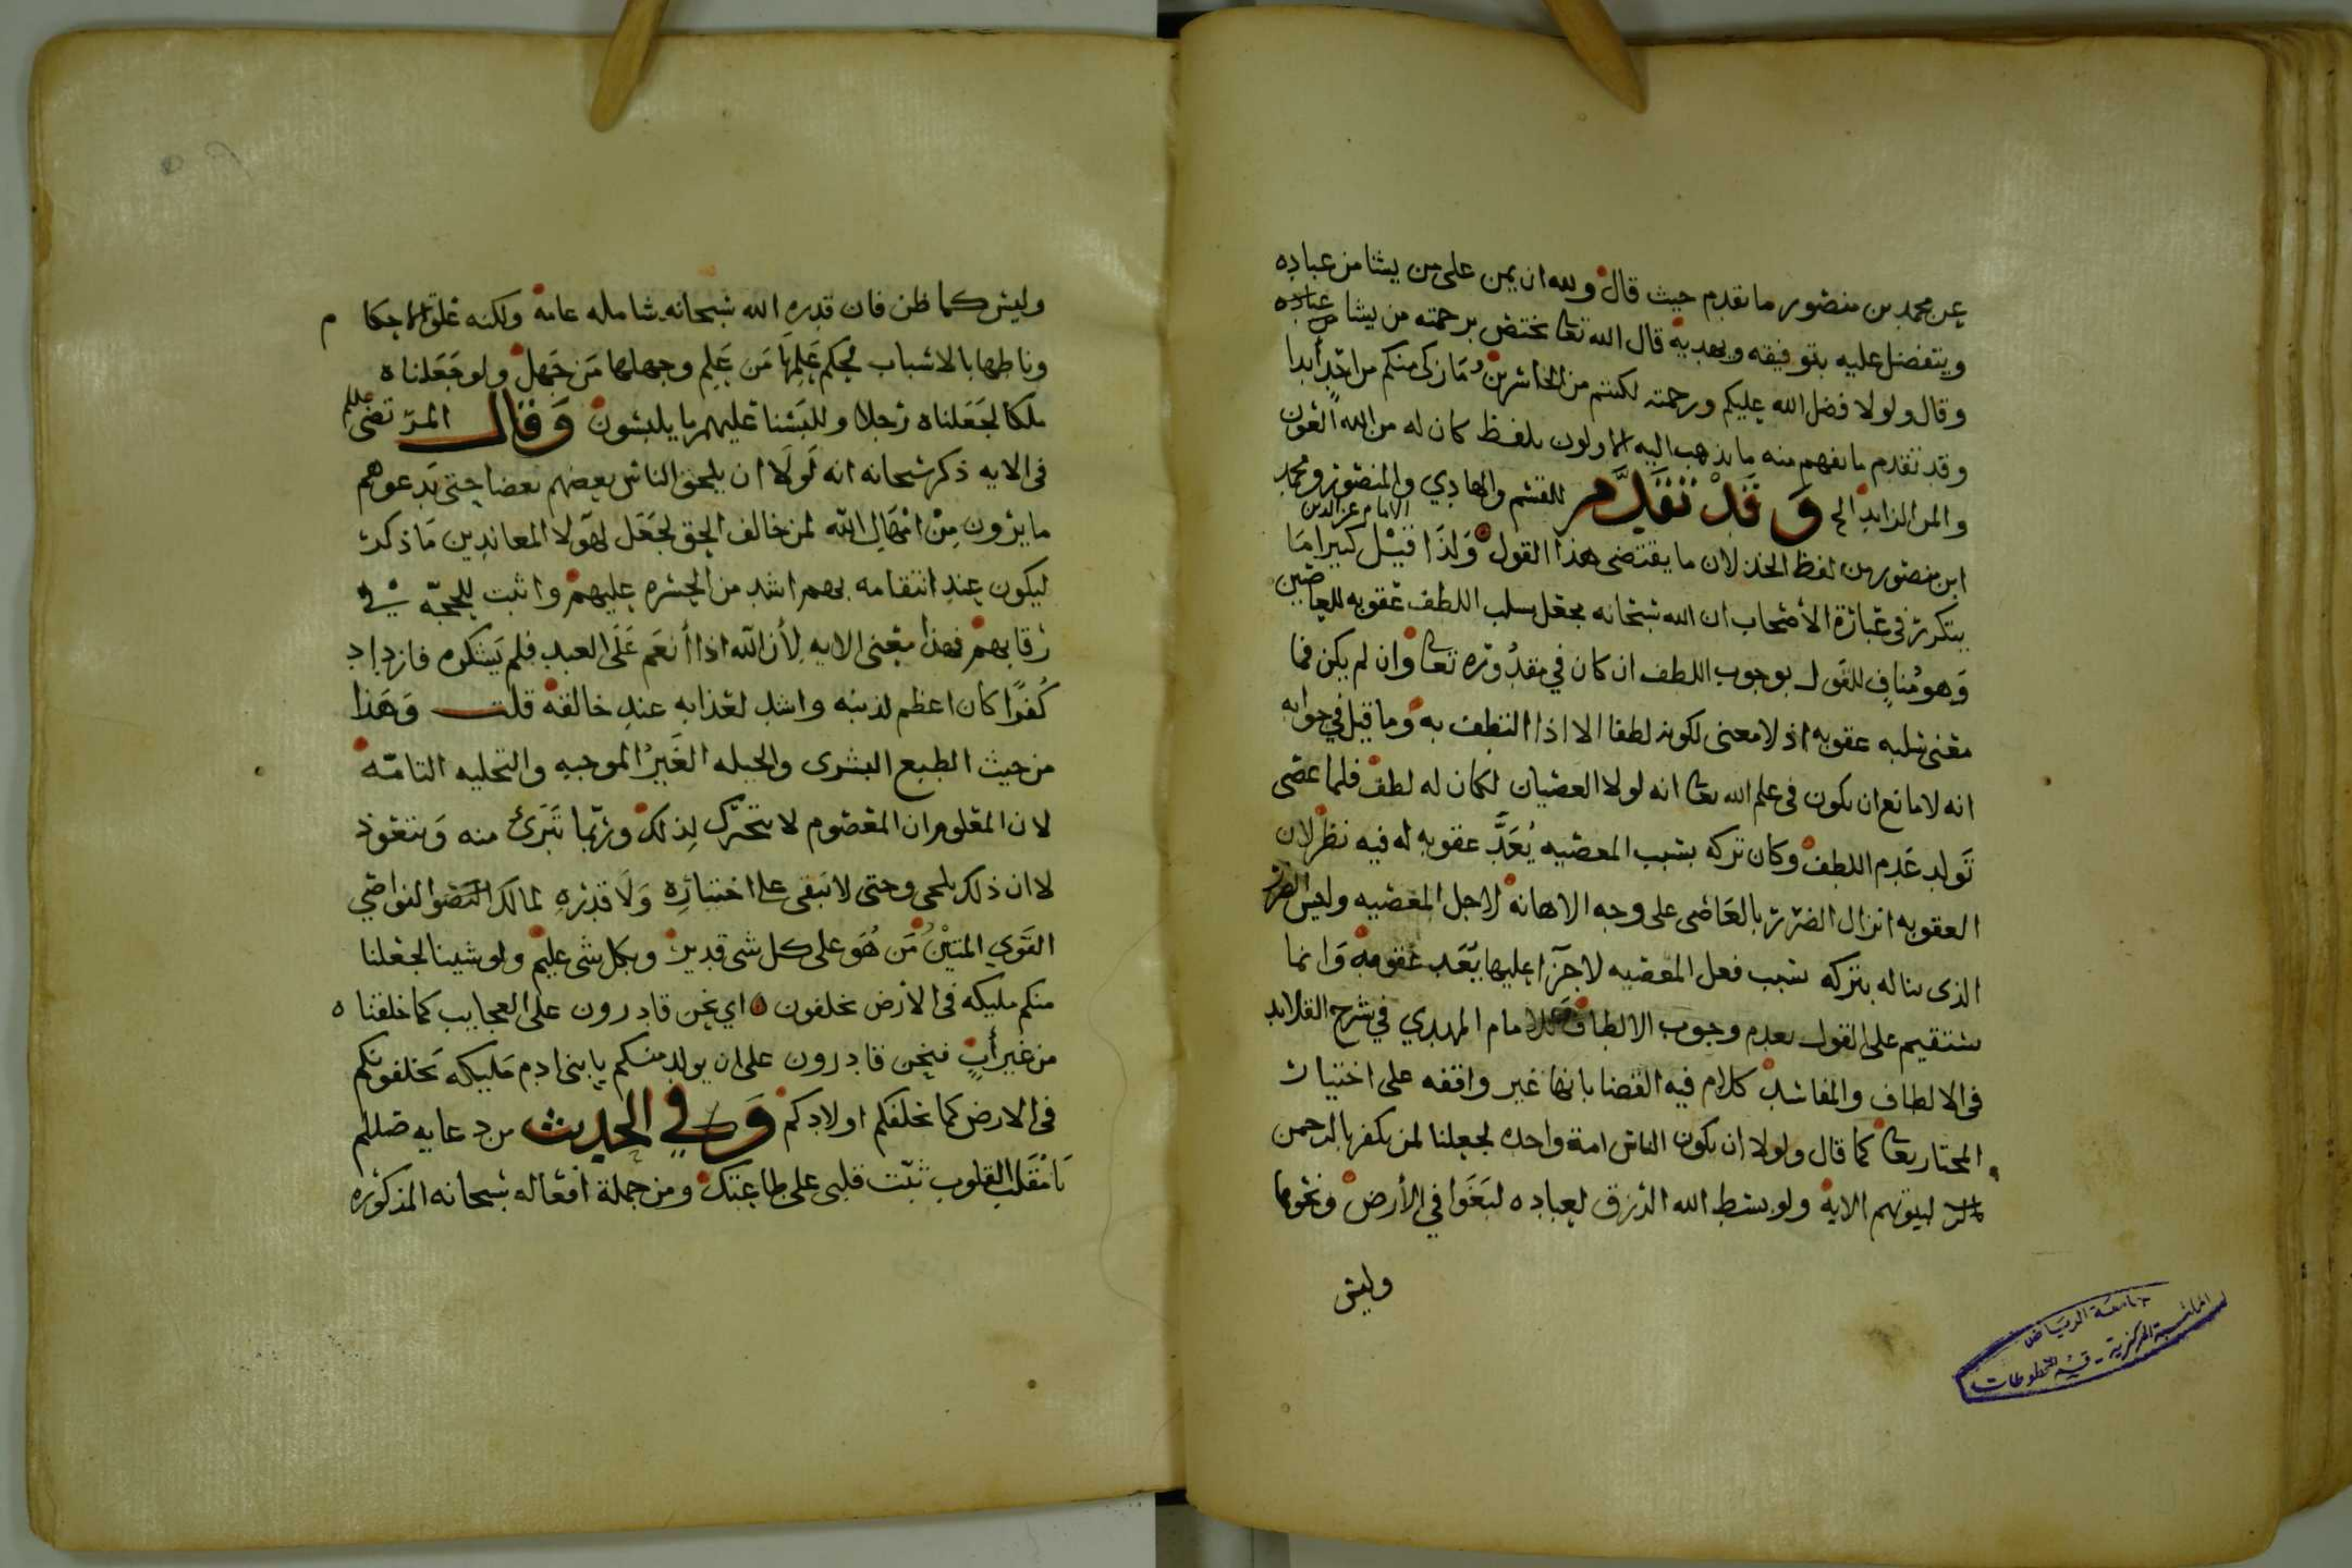 عن محمد بن منصور ما تقدم حيث قال ولله ان يمن على من يشا من عباده
ويتفضل عليه بتوفيقه وبهديه قال الله تعا يختص برحمته من يشا من عباده
وقال ولولا فضل الله عليكم ورحمته لكنتم من الخاسرين وما زكى منكم من احد أبدا
وقد تقدم ما يفهم منه ما يذهب اليه الاولون بلفظ كان له من الله العون
والمن الزايد الخ وقد تقدم للقسم والهادي والمنصور ومحمد
الامام عز الدين
ابن منصور من لفظ الخذلان ما يقتضى هذا القول ولذا قيل كبيرا ما
يتكرر في عبارة الأصحاب ان الله سبحانه يجعل سلب اللطف عقوبه للعاصين
وهو مناف للقول بوجوب اللطف ان كان في مقدوره تعا وان لم يكن فما
معنى سلبه عقوبه اذ لا معنى لكونه لطفا الا اذا التطف به وما قيل في جوابه
انه لا مانع ان يكون في علم الله تعا انه لولا العصيان لكان له لطف فلما عصى
تولد عدم اللطف وكان تركه بسبب المعصيه يُعَدّ عقوبه له فيه نظر لان
العقوبه انزال الضرر بالعاصى على وجه الاهانه لاجل المعصيه وليس الضرر
الذى يناله بتركه بسبب فعل المعصيه لا جزآ عليها يعد عقوبة وانما
يستقيم على القول بعدم وجوب الالطاف للامام المهدي في شرح القلايد
في الالطاف والمفاسد كلام فيه القضا بانها غير واقفه على اختيار
المختار تعا كما قال ولولا ان يكون الناس امة واحده لجعلنا لمن يكفر بالرحمن
لبيوتهم الاية ولو بسط الله الرزق لعباده لبغوا في الأرض ونحوها
وليس
جامعة الرياض
المكتبة المركزية - قسم المخطوطات
وليس كما ظن فان قدره الله سبحانه شامله عامه ولكنه علق الاحكام
وناطها بالاسباب لحِكم عَلِمَها مَن عَلِم وجهلها مَن جَهل ولو جعلناه
ملكا لجعلناه رجلا وللبسنا عليهم ما يلبسون وقال المرتضى
في الايه ذكر سبحانه انه لولا ان يلحق الناس بعضهم بعضا حتى يدعوهم
ما يرون من امهال الله لمن خالف الحق لجعل لهولا المعاندين ما ذكر
ليكون عند انتقامه بهم اشد من الحسره عليهم واثبت للحجه في
رقابهم فهذا معنى الايه لأن الله اذا أنعم على العبد فلم يشكره فازداد
كُفرًا كان اعظم لذنبه واشد لعذابه عند خالقه قلت وهذا
من حيث الطبع البشرى والجبله الغَيرُ الموجبه والتخليه التامّه
لان المعلوم ان المعصوم لا يتحرك لذلك وربّما تبرئ منه ويتعوذ
لا ان ذلك يلجى وحتى لا تبقى على اختياره ولا قدره لمالك النواصي
القوي المتين مَن هُو على كل شى قدير وبكل شى عليم ولو شينا لجعلنا
منكم مليكه في الأرض يخلفون اي نحن قادرون على العجايب كما خلقناه
من غير أبٍ فنحن قادرون على ان يولد منكم يا بنى ادم مليكه تخلفونكم
في الارض كما يخلفكم اولادكم وفي الحديث من دعايه صللم
يا مقلب القلوب ثبّت قلبى على طاعتك ومن جملة افعاله سبحانه المذكوره